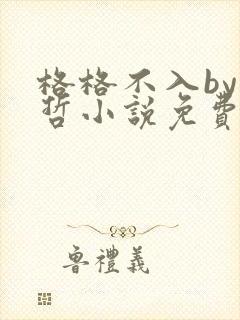 格格不入by
哲小説免費
魯禮義